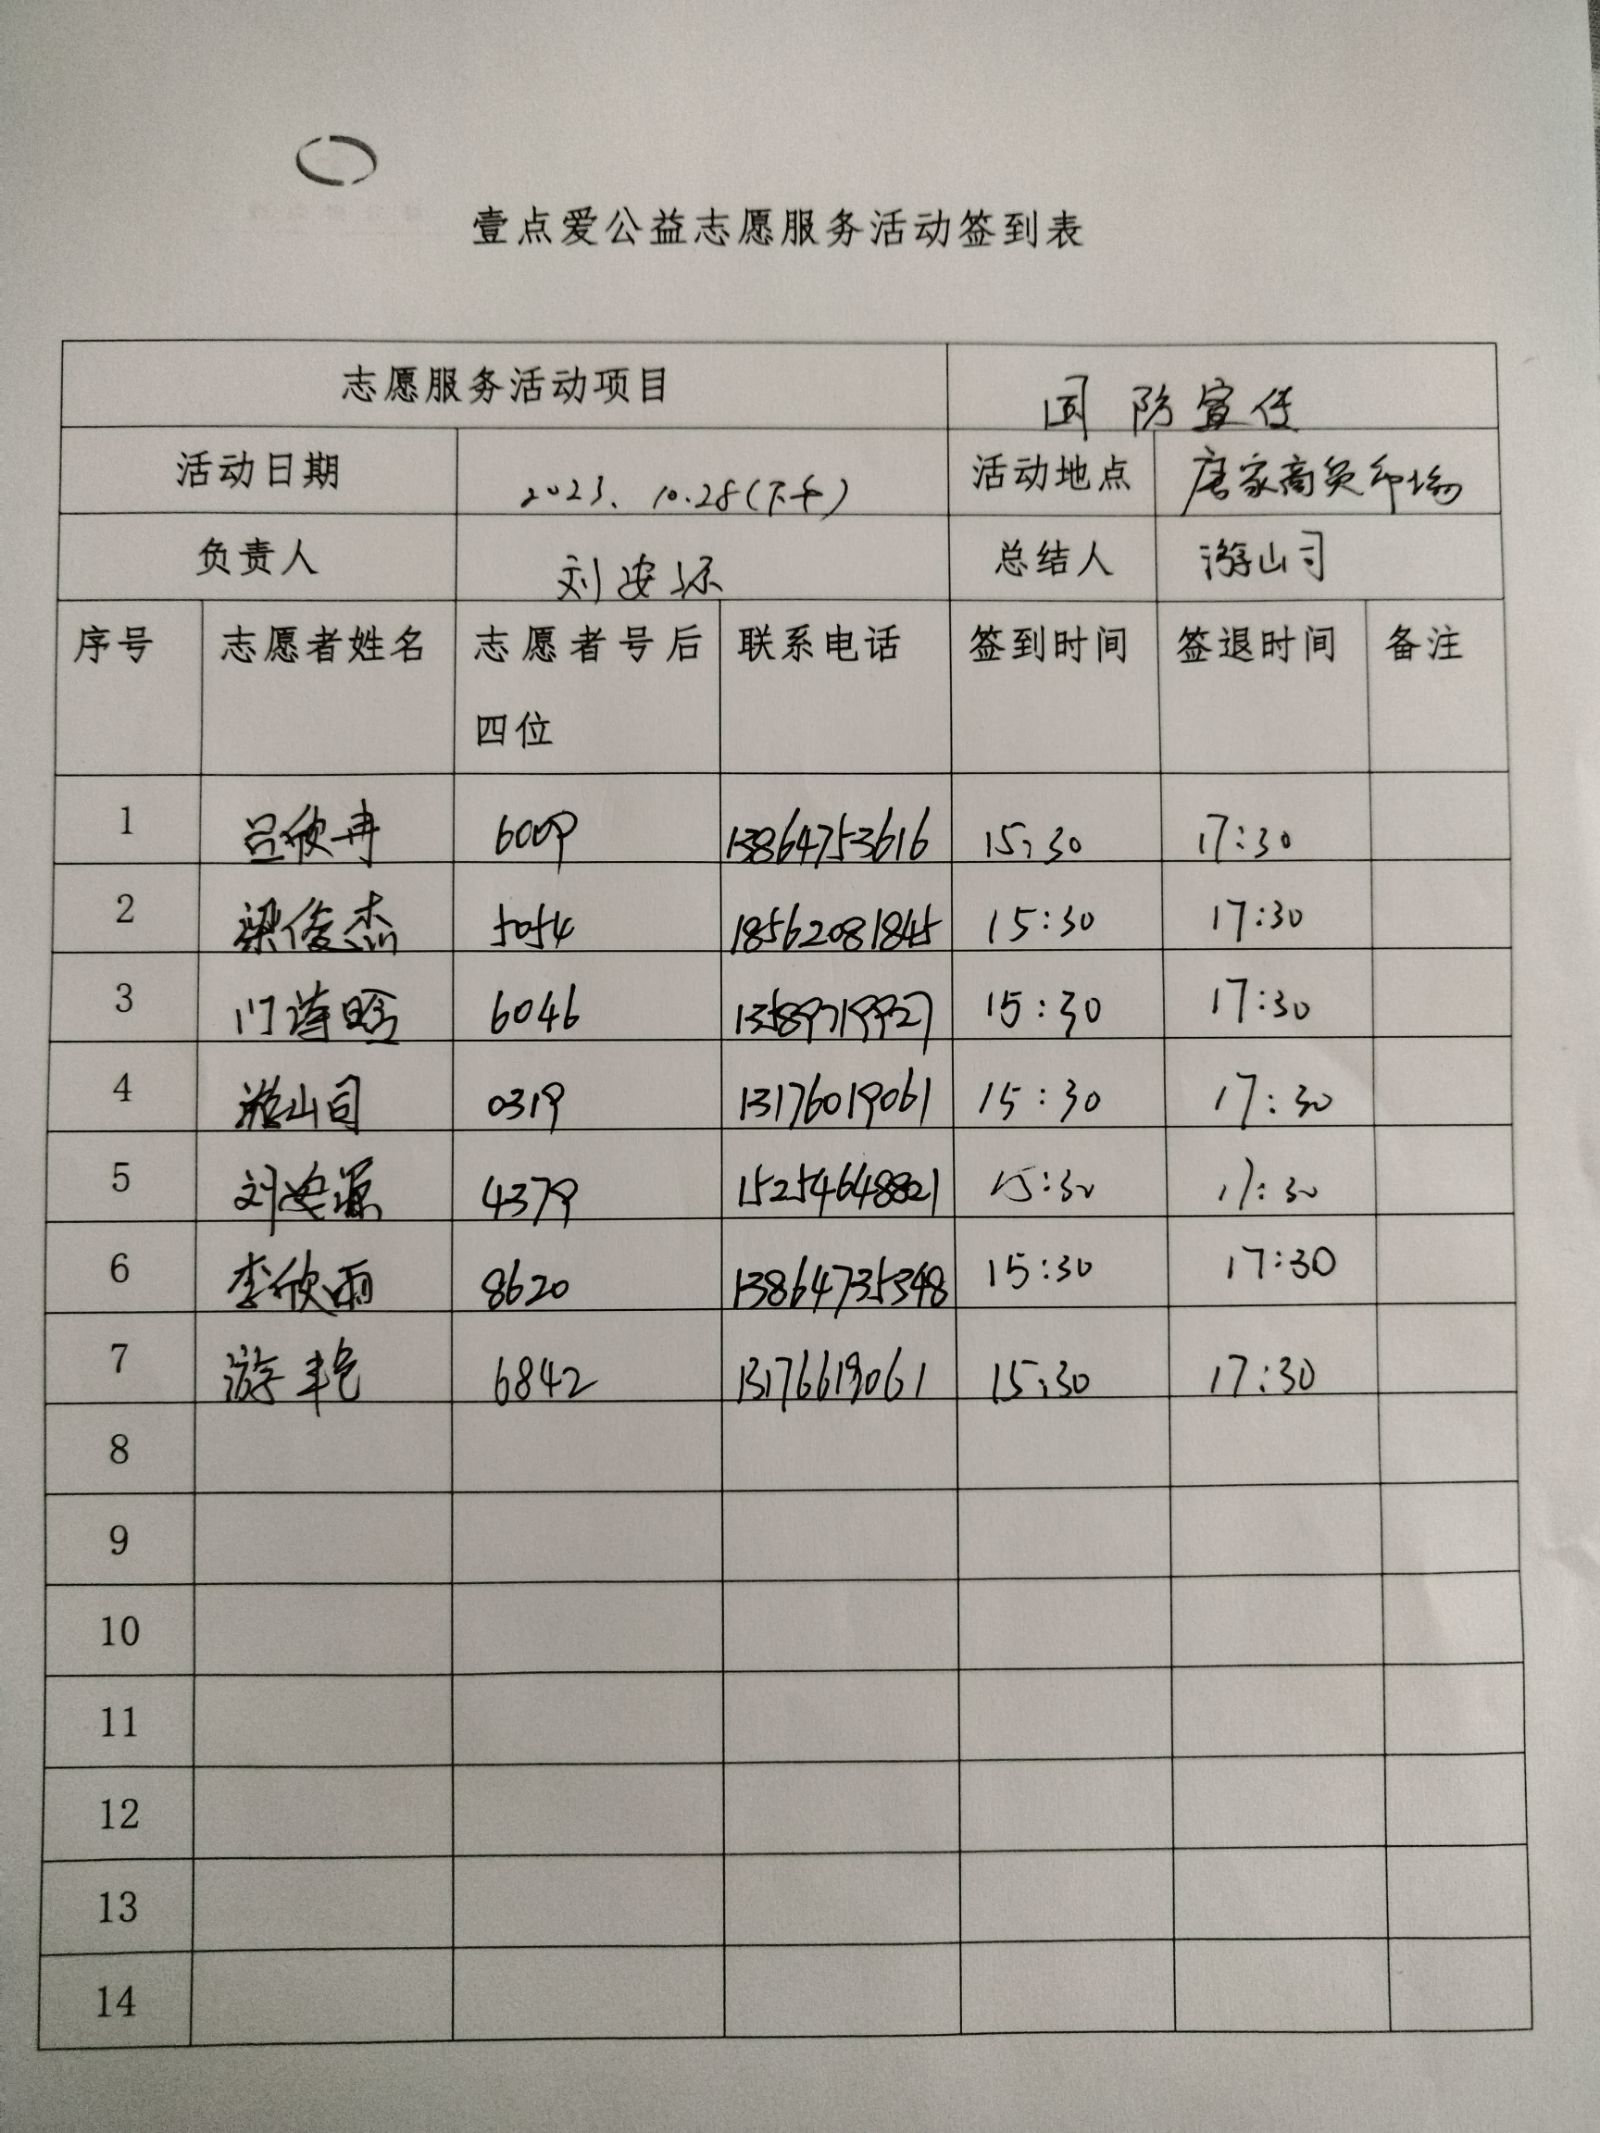 壹点爱公益志愿服务活动签到表
志愿服务活动项目 国防宣传
活动日期 2023、10.28(下午) 活动地点 唐家商贸市场
负责人 刘安源 总结人 游山司
序号 志愿者姓名 志愿者号后四位 联系电话 签到时间 签退时间 备注
1 吕欣冉 6009 13864753616 15:30 17:30
2 梁俊杰 5054 18562081845 15:30 17:30
3 门诗晗 6046 13589719927 15:30 17:30
4 游山司 0319 13176019061 15:30 17:30
5 刘安源 4379 15254648821 15:30 17:30
6 李欣雨 8620 13864735348 15:30 17:30
7 游 6842 13176619061 15:30 17:30
8
9
10
11
12
13
14